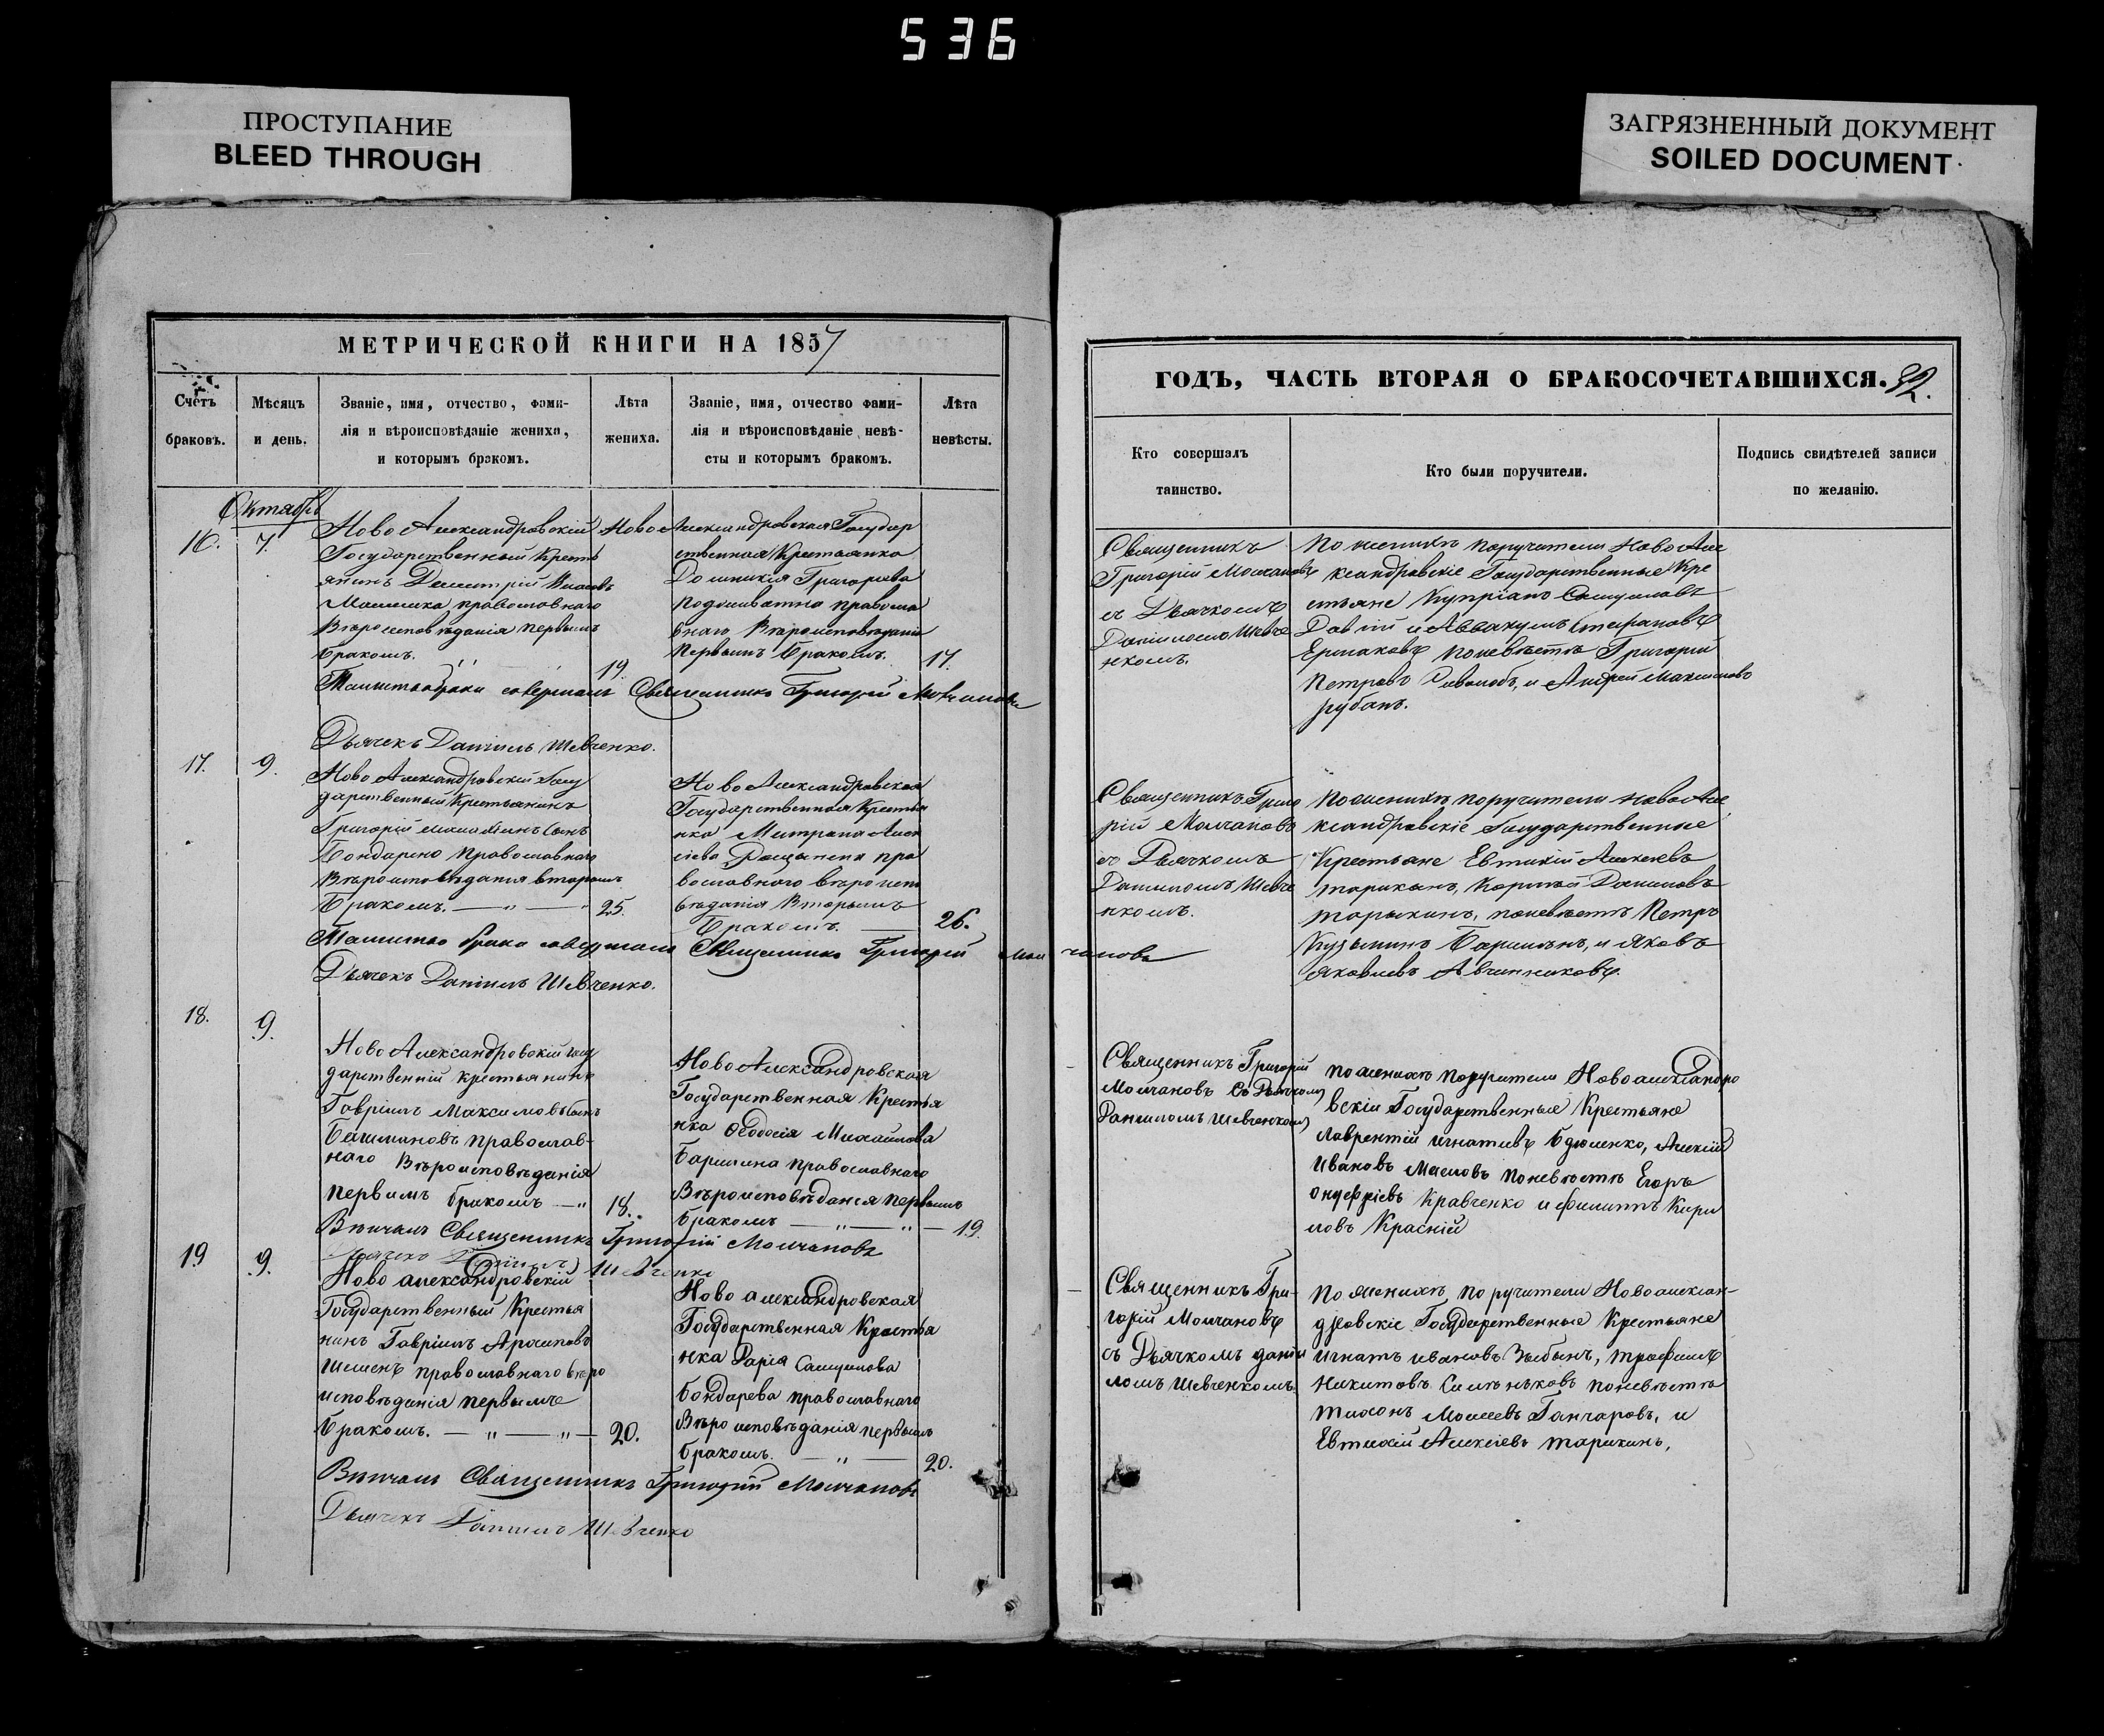 536
ПРОСТУПАНИЕ
BLEED THROUGH
ЗАГРЯЗНЕННЫЙ ДОКУМЕНТ
SOILED DOCUMENT
МЕТРИЧЕСКОЙ КНИГИ НА 1857
Счетъ браковъ.
Мѣсяцъ и день.
Званіе, имя, отчество, фами-
лія и вѣроисповѣданіе жениха,
и которымъ бракомъ.
Лѣта
жениха.
Званіе, имя, отчество фами-
лія и вѣроисповѣданіе невѣ-
сты и которымъ бракомъ.
Лѣта
невѣсты.
Октябрь
16. 7.
Ново Александровскій
Государственный Кресть
янинъ Димитрій
православнаго
Вѣроисповѣданія первымъ
бракомъ.
19.
Ново Александровская Государ
ственная Крестьянка
Домникія Григорьева
правосла
внаго Вѣроисповѣданія
Первымъ бракомъ.
17.
Таинство брака совершалъ Священникъ Григорій Молчановъ
Дьячекъ Даніилъ Шевченко.
17. 9.
Ново Александровскій Госу
дарственный Крестьянинъ
Григорій сынъ
Бондарено Православнаго
Вѣроисповѣданія вторымъ
Бракомъ. — " — " 25.
Ново Александровская
Государственная Крестья
нка Алек
сіева пра
вославнаго вѣроиспо
вѣданія Вторымъ
Бракомъ. — 26.
Таинство брака совершалъ Священникъ Григорій Молчановъ
Дьячекъ Даніилъ Шевченко.
18. 9.
Ново Александровскій госу
дарственній крестьянинъ
Гавріилъ Максимовъ сынъ
православ-
наго Вѣроисповѣданія
первимъ бракомъ — " 18.
Ново Александровская
Государственная Крестья
нка Ѳеодосія Михайлова
Баришна православнаго
Вѣроисповѣданія первымъ
бракомъ — " — " — 19.
Вѣнчалъ Священникъ Григорій Молчановъ
Дьячекъ Даніилъ Шевченко
19 9.
Ново александровскій
Государственный Крестья
нинъ Гавріилъ
православнаго вѣро
исповѣданія первымъ
бракомъ. — " — " — 20.
Ново александровская
Государственная Крестья
нка Дарія Самуилова
Бондарева православнаго
Вѣро исповѣданія первымъ
бракомъ. — " — 20.
Вѣнчалъ Священникъ Григорій Молчановъ
Дьячекъ Даніилъ Шевченко
ГОДЪ, ЧАСТЬ ВТОРАЯ О БРАКОСОЧЕТАВШИХСЯ. 92.
Кто совершалъ
таинство.
Кто были поручители.
Подпись свидѣтелей записи
по желанію.
Священникъ
Григорій Молчановъ
съ Дьячкомъ
Даніиломъ Шевче
нкомъ.
По женихѣ поручители Ново Але
ксандровскіе Государственные Кре
стьяне Купріанъ Самуиловъ
и Аввакумъ Стефановъ
Ермаковъ по невѣстѣ Григорій
Петровъ и Андрей Максимовъ
Рубанъ.
Священникъ Григо
рій Молчановъ
съ Дьячкомъ
Даниломъ Шевче
нкомъ.
По женихѣ поручители Ново Але
ксандровскіе Государственные
Крестьяне Евтихій Алексѣевъ
Тарикинъ, Корнѣй Даниловъ
Тарыкинъ, по невѣстѣ Петръ
Кузьминъ и Яковъ
Яковлевъ Авчинниковъ.
Священникъ Григорій
Молчановъ съ Дьячкомъ
Даниломъ Шевченкомъ
по женихѣ поручители Новоалександро
вскіи Государственные Крестьяне
Лаврентій Игнатіевъ Алексій
Ивановъ Масловъ по невѣстѣ Егоръ
Онуфріевъ Кравченко и Филиппъ Кири
ловъ Красній
Священникъ Гри-
горій Молчановъ
съ Дьячкомъ Даніи
ломъ Шевченкомъ.
по женихѣ поручители Новоалексан-
дровскіе Государственные Крестьяне
Игнатъ Ивановъ Зыбинъ, Трофимъ
Никитовъ по невѣстѣ
Тихонъ Моисеевъ Ганчаровъ, и
Евтихій Алексіевъ Тарикинъ,